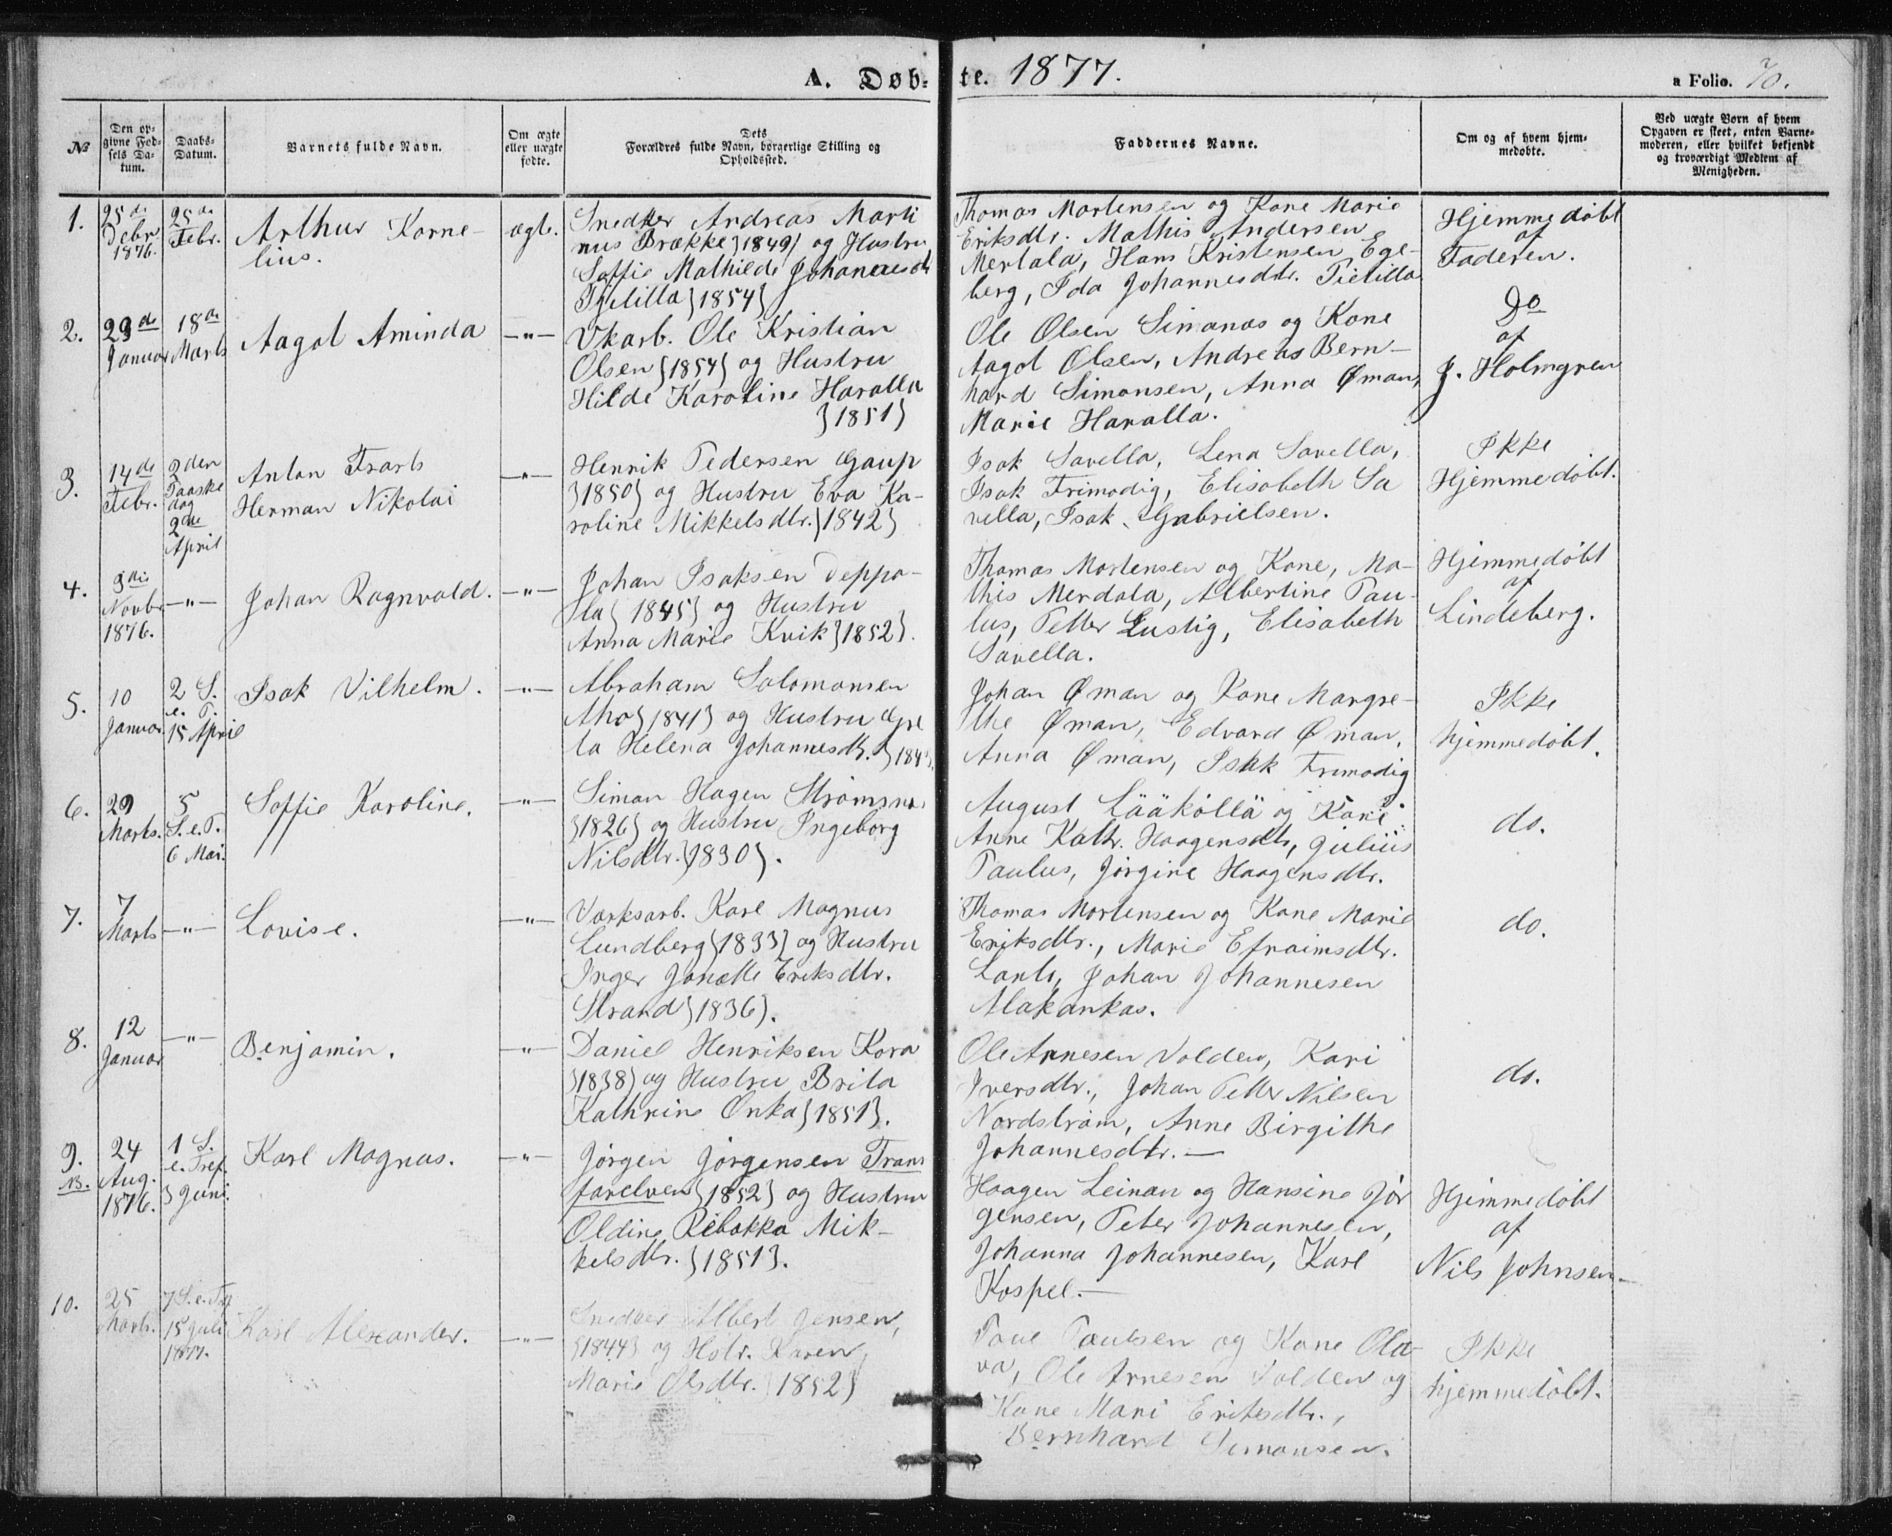 A. Døb- te. 1877. a Folio. 70.
№
Den op-
givne Fød-
sels Da-
tum.
Daabs-
Datum.
Barnets fulde Navn.
Om ægte
eller uægte
fødte.
Dets
Forældres fulde Navn, borgerlige Stilling og
Opholdssted.
Faddernes Navne.
Om og af hvem hjem-
medøbte.
Ved uægte Børn af hvem
Opgaven er skeet, enten Barne-
moderen, eller hvilket bekjendt
og troværdigt Medlem af
Menigheden.
1.
25de
Debr
1876.
25de
Febr.
Arthur Korne-
lius.
ægte.
Snedker Andreas Marti
nus Brække}1849} og Hustru
Soffie Mathilde Johannesdtr
Tjelilla}1854}
Thomas Mortensen og Kone Marie
Eriksdtr. Mathis Andersen
Mertala, Hans Kristensen Ege-
berg, Ida Johannesdtr. Tielilla
Hjemmedøbt
af
Faderen.
2.
29de
Januar
18de
Marts
Aagot Aminda
-"-
Vkarb. Ole Kristian
Olsen}1854} og Hustru
Hilde Karoline Haralla
}1851}
Ole Olsen Simanas og Kone
Aagot Olsen, Andreas Bern-
hard Simonsen, Anna Øman,
Marie Haralla.
Do
af
J. Holmgren
3.
14de
Febr.
2den
Paaske
dag
2den
April
Anton Frarts
Herman Nikolai
-"-
Henrik Pedersen Gaup
}1850} og Hustru Eva Ka-
roline Mikkelsdtr.}1842}
Isak Savella, Lena Savella,
Isak Frimodig, Elisabeth Sa
vella, Isak Gabrielsen.
Ikke
Hjemmedøbt.
4.
Novbr
1876.
-"-
Johan Ragnvald.
-"-
Johan Isaksen Seppa-
la} 1845} og Hustru
Anna Marie Kvik}1852}.
Thomas Mortensen og Kone, Ma-
this Merdala, Albertine Pau-
lus, Petter Lustig, Elisabeth
Savella.
Hjemmedøbt
af
Lindeberg.
5.
10
Januar
2 S.
e. P.
15 April
Isak Vilhelm.
-"-
Abraham Salomonsen
Aho}1841} og Hustru Gre
ta Helena Johannesdtr.
Johan Øman og Kone Margre-
the Øman, Edvard Øman,
Anna Øman, Isak Frimodig
Ikke
hjemmedøbt.
6.
29
Marts.
5
S.e.P.
6 Mai.
Soffie Karoline.
-"-
Simon Hagen Strømsnes
}1826} og Hustru Ingeborg
Nilsdtr.}1830}.
August Lääkölä og Kone
Anne Kathr. Haagensdtr, Julius
Paulus, Jørgine Haagensdtr.
do.
7.
7
Marts
-"-
Lovise.
-"-
Værksarb. Karl Magnus
Lundberg}1833} og Hustru
Inger Janette Eriksdtr.
Strand}1836}.
Thomas Mortensen og Kone Marie
Eriksdtr., Marie Efraimsdtr.
Lanto, Johan Johannesen
Alakankas.
do.
8.
12
Januar
-"-
Benjamin.
-"-
Daniel Henriksen Kora
}1838} og Hustru Brita
Kathrine Onka}1851}.
Ole Arnesen Volden, Kari
Iversdtr., Johan Petter Nilsen
Nordstrøm, Anne Birgithe
Johannesdtr.—
do.
9.
NB.
24
Aug.
1876.
1 S.
e. Tref.
3 Juni
Karl Magnus.
-"-
Jørgen Jørgensen Trans
farelven}1852} og Hustru
Oldine Rebekka Mik-
kelsdtr.}1851}.
Haagen Leinan og Hansine Jør
gensen, Peter Johannesen,
Johanna Johannesen, Karl
Kospel.—
Hjemmedøbt
af
Nils Johnsen—
10.
25
Marts.
7 S.e.Tref
15 Juli
1877.
Karl Alexander.
-"-
Snedker Albert Jensen,
}1844} og Hstr. Karen
Marie Olsdtr. }1852}
Paul Paulsen og Kone Ola-
va, Ole Arnesen Volden og
Kone Mari Eriksdtr.,
Bernhard Simonsen.
Ikke
hjemmedøbt.